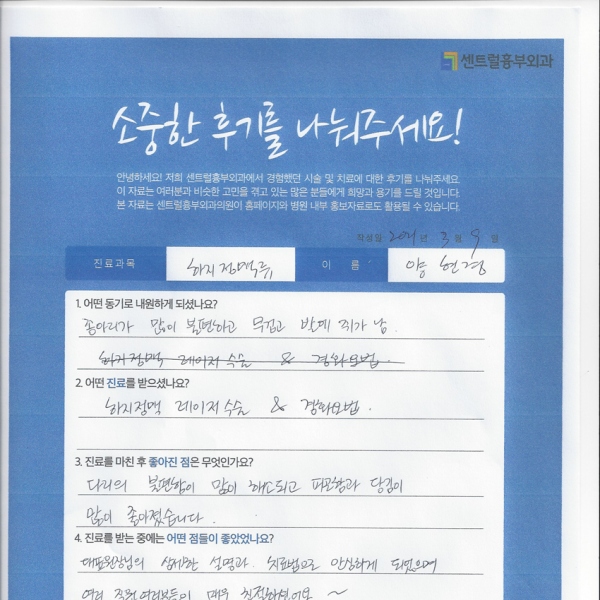 센트럴흉부외과
소중한 후기를 나눠주세요!
안녕하세요! 저희 센트럴흉부외과에서 경험했던 시술 및 치료에 대한 후기를 나눠주세요.
이 자료는 여러분과 비슷한 고민을 겪고 있는 많은 분들에게 희망과 용기를 드릴 것입니다.
본 자료는 센트럴흉부외과의원이 홈페이지와 병원 내부 홍보자료로도 활용될 수 있습니다.
작성일 2021년 3월 9일
진료과목 하지정맥류 이름 양현경
1. 어떤 동기로 내원하게 되셨나요?
종아리가 많이 불편하고 무겁고 밤에 쥐가 남.
하지정맥 레이저수술 & 경화요법.
2. 어떤 진료를 받으셨나요?
하지정맥 레이저수술 & 경화요법.
3. 진료를 마친 후 좋아진 점은 무엇인가요?
다리의 불편함이 많이 해소되고 피곤함과 당김이
많이 좋아졌습니다.
4. 진료를 받는 중에는 어떤 점들이 좋았었나요?
대표원장님의 상세한 설명과 치료법으로 안심하게 되었으며
여러 직원 여러분들이 매우 친절하셨어요 ~